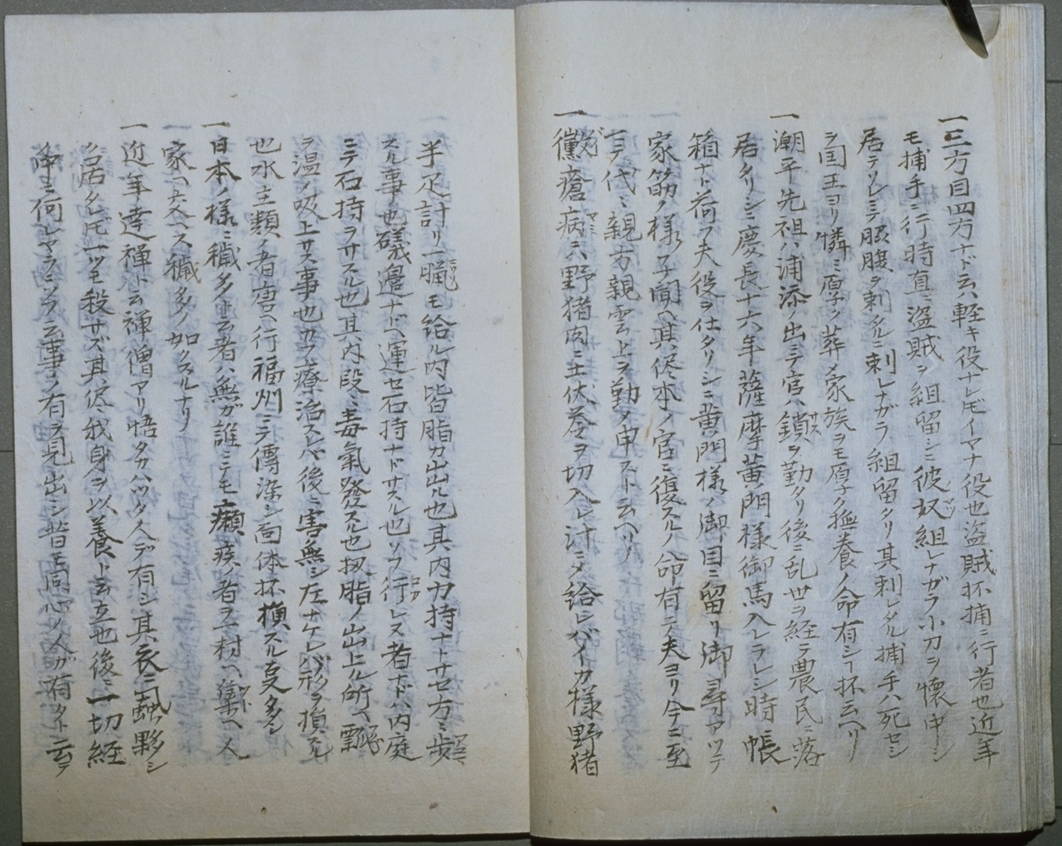 一三方目四方ナド云ハ軽キ役ナレ𪜈イマナ役也盗賊抔捕ニ行者也近年
モ捕手ニ行時直ニ盗賊ヲ組留シニ彼奴組レナガラ小刀ヲ懐中シ
居テ 脇腹ヲ刺 ニ刺レナガラ組留タリ其刺レタル捕手ハ死セシ
ヲ国王ヨリ憐ミ厚ク葬メ家族ヲモ厚ク撫養ノ命有シ抔云ヘリ
一潮平先祖ハ浦添ノ出ニテ官ハ鎖ヲ勤タリ後ニ乱世ヲ経テ農民ニ落
居タリシニ慶長十六年薩摩黄門様御馬入レラレシ時帳
箱ナド荷フ夫役ヲ仕タリシニ黄門様ノ御目ニ留リ御尋アツテ
家筋ノ様子聞ヘ其侭本ノ官ニ復スルノ命有テ夫ヨリ今ニ至
テ代々親方親雲上ヲ勤メ申スト云ヘリ
一黴瘡病ニハ野猪肉ニ土伏苓ヲ切入レ汁ニメ給レバイカ様野猪
半疋計リ一臈モ給ル内皆脂カ出ル也其内力持ナトサセ方々歩
スル事也礒邉ナドヘ運セ石持ナドサスル也ソフ行レヌ者ナドハ内庭
ニテ石持ラサスル也其内段々毒氣發スル也扨脂ノ出上ル所ヘ瓢
ヲ温メ吸上サス事也乃療治スレバ後ニ害無シ左サケレバ形ヲ損 
也水土類ノ者唐ヘ行福州ニテ傳染シ向体抔損スル モ多シ
一日本ノ様ニ穢多ト云者ハ無ガ誰ニテモ癩疾者ヲ一村ヘ集ヘ人
家ヘ入ヘス穢多ノ如クスルナリ
一近年達禅ト云禅僧アリ悟タカハツタ人デ有シ其衣ニ虱ノ夥シ
ク居タレ𪜈一ツモ殺サズ其侭我身ヲ以養ト云立也後ニ一切経
 ニ何レヤラニソフ云事ノ有ヲ見出シ昔モ同心ノ人ガ有タト云テ